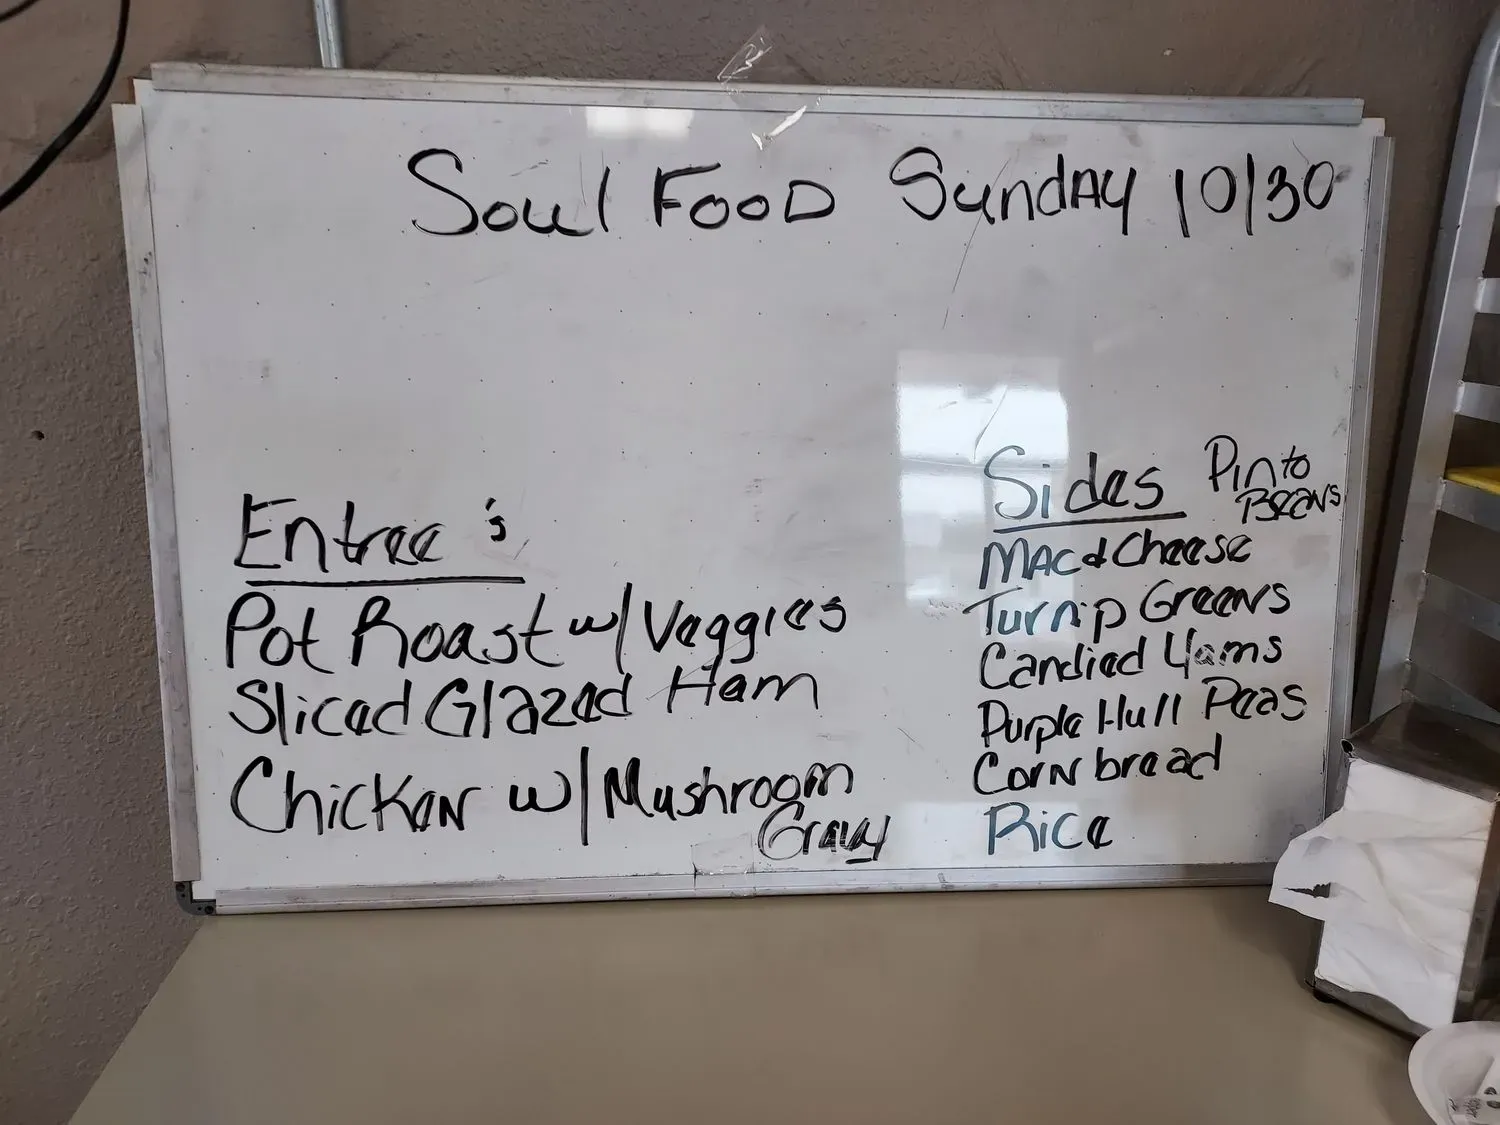 Soul Food Sunday 10/30
Entree's
Pot Roast w/ Veggies
Sliced Glazed Ham
Chicken w/ Mushroom
Gravy
Sides
Pinto
Beans
Mac & Cheese
Turnip Greens
Candied Yams
Purple Hull Peas
Cornbread
Rice